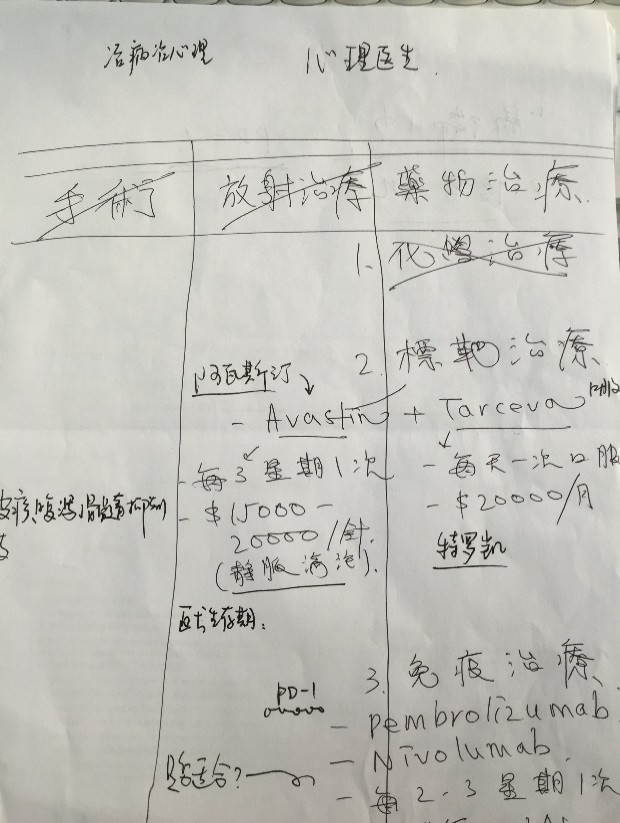 治病治心理 心理医生.
手術 放射治療 藥物治療.
1. 化學治療
2. 標靶治療
阿瓦斯汀
- Avastin + Tarceva 口服
- 每3星期1次 - 每天一次口服
- $15000 - - $20000/月
20000/針.
(静脈滴注). 特罗凯
皮疹、腹泻、骨髓抑制
生存期:
3. 免疫治療
PD-1
- Pembrolizumab
- Nivolumab
是否适合?
- 每2-3星期1次